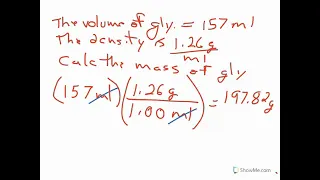 The volume of gly. = 157 ml
The density is 1.26 g / ml
Calc the mass of gly
(157 ml) (1.26 g / 1.00 ml) = 197.82g
ShowMe.com